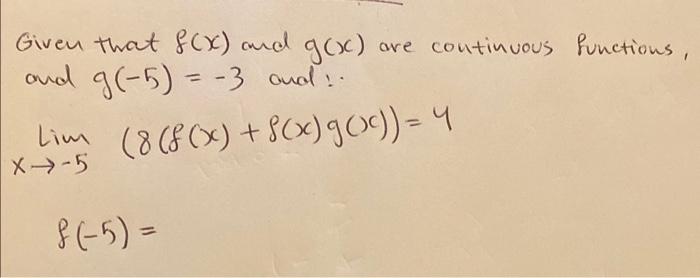 Given that f(x) and g(x) are continuous functions,
and g(-5) = -3 and:.
Lim (8(f(x) + f(x)g(x)) = 4
x→-5
f(-5) =